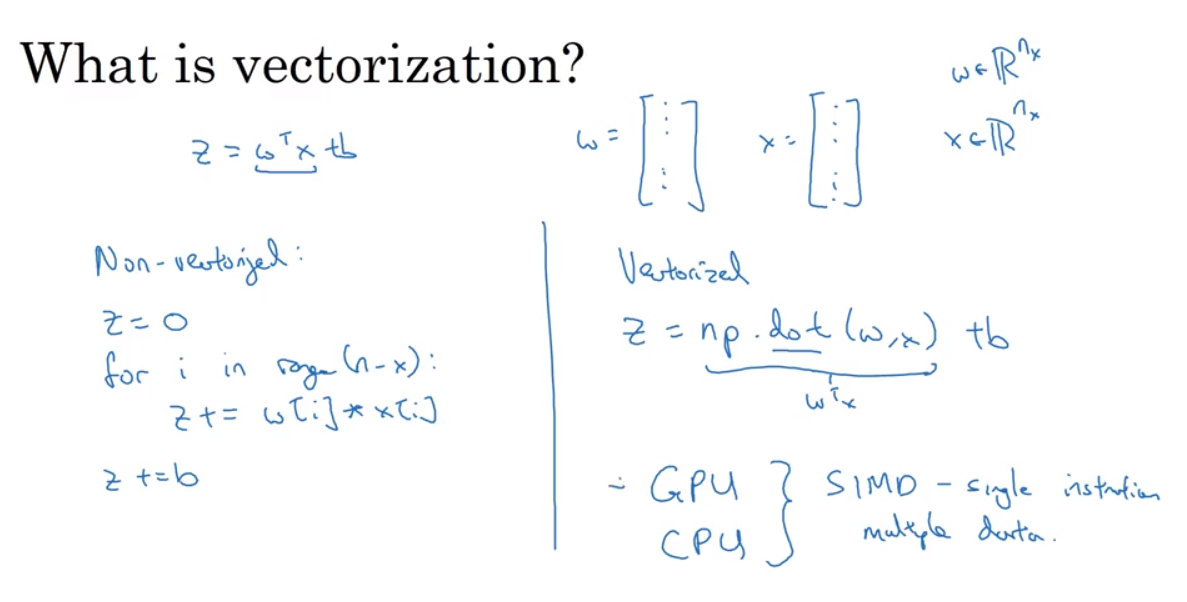 What is vectorization?
z = wᵀx + b
w = [⋮ ⋮]
x = [⋮ ⋮]
w ∈ ℝⁿˣ
x ∈ ℝⁿˣ
Non-vectorized:
z = 0
for i in range(n-x):
z += w[i] * x[i]
z += b
Vectorized
z = np.dot(w,x) + b
wᵀx
GPU
CPU
} SIMD - single instruction
multiple data.